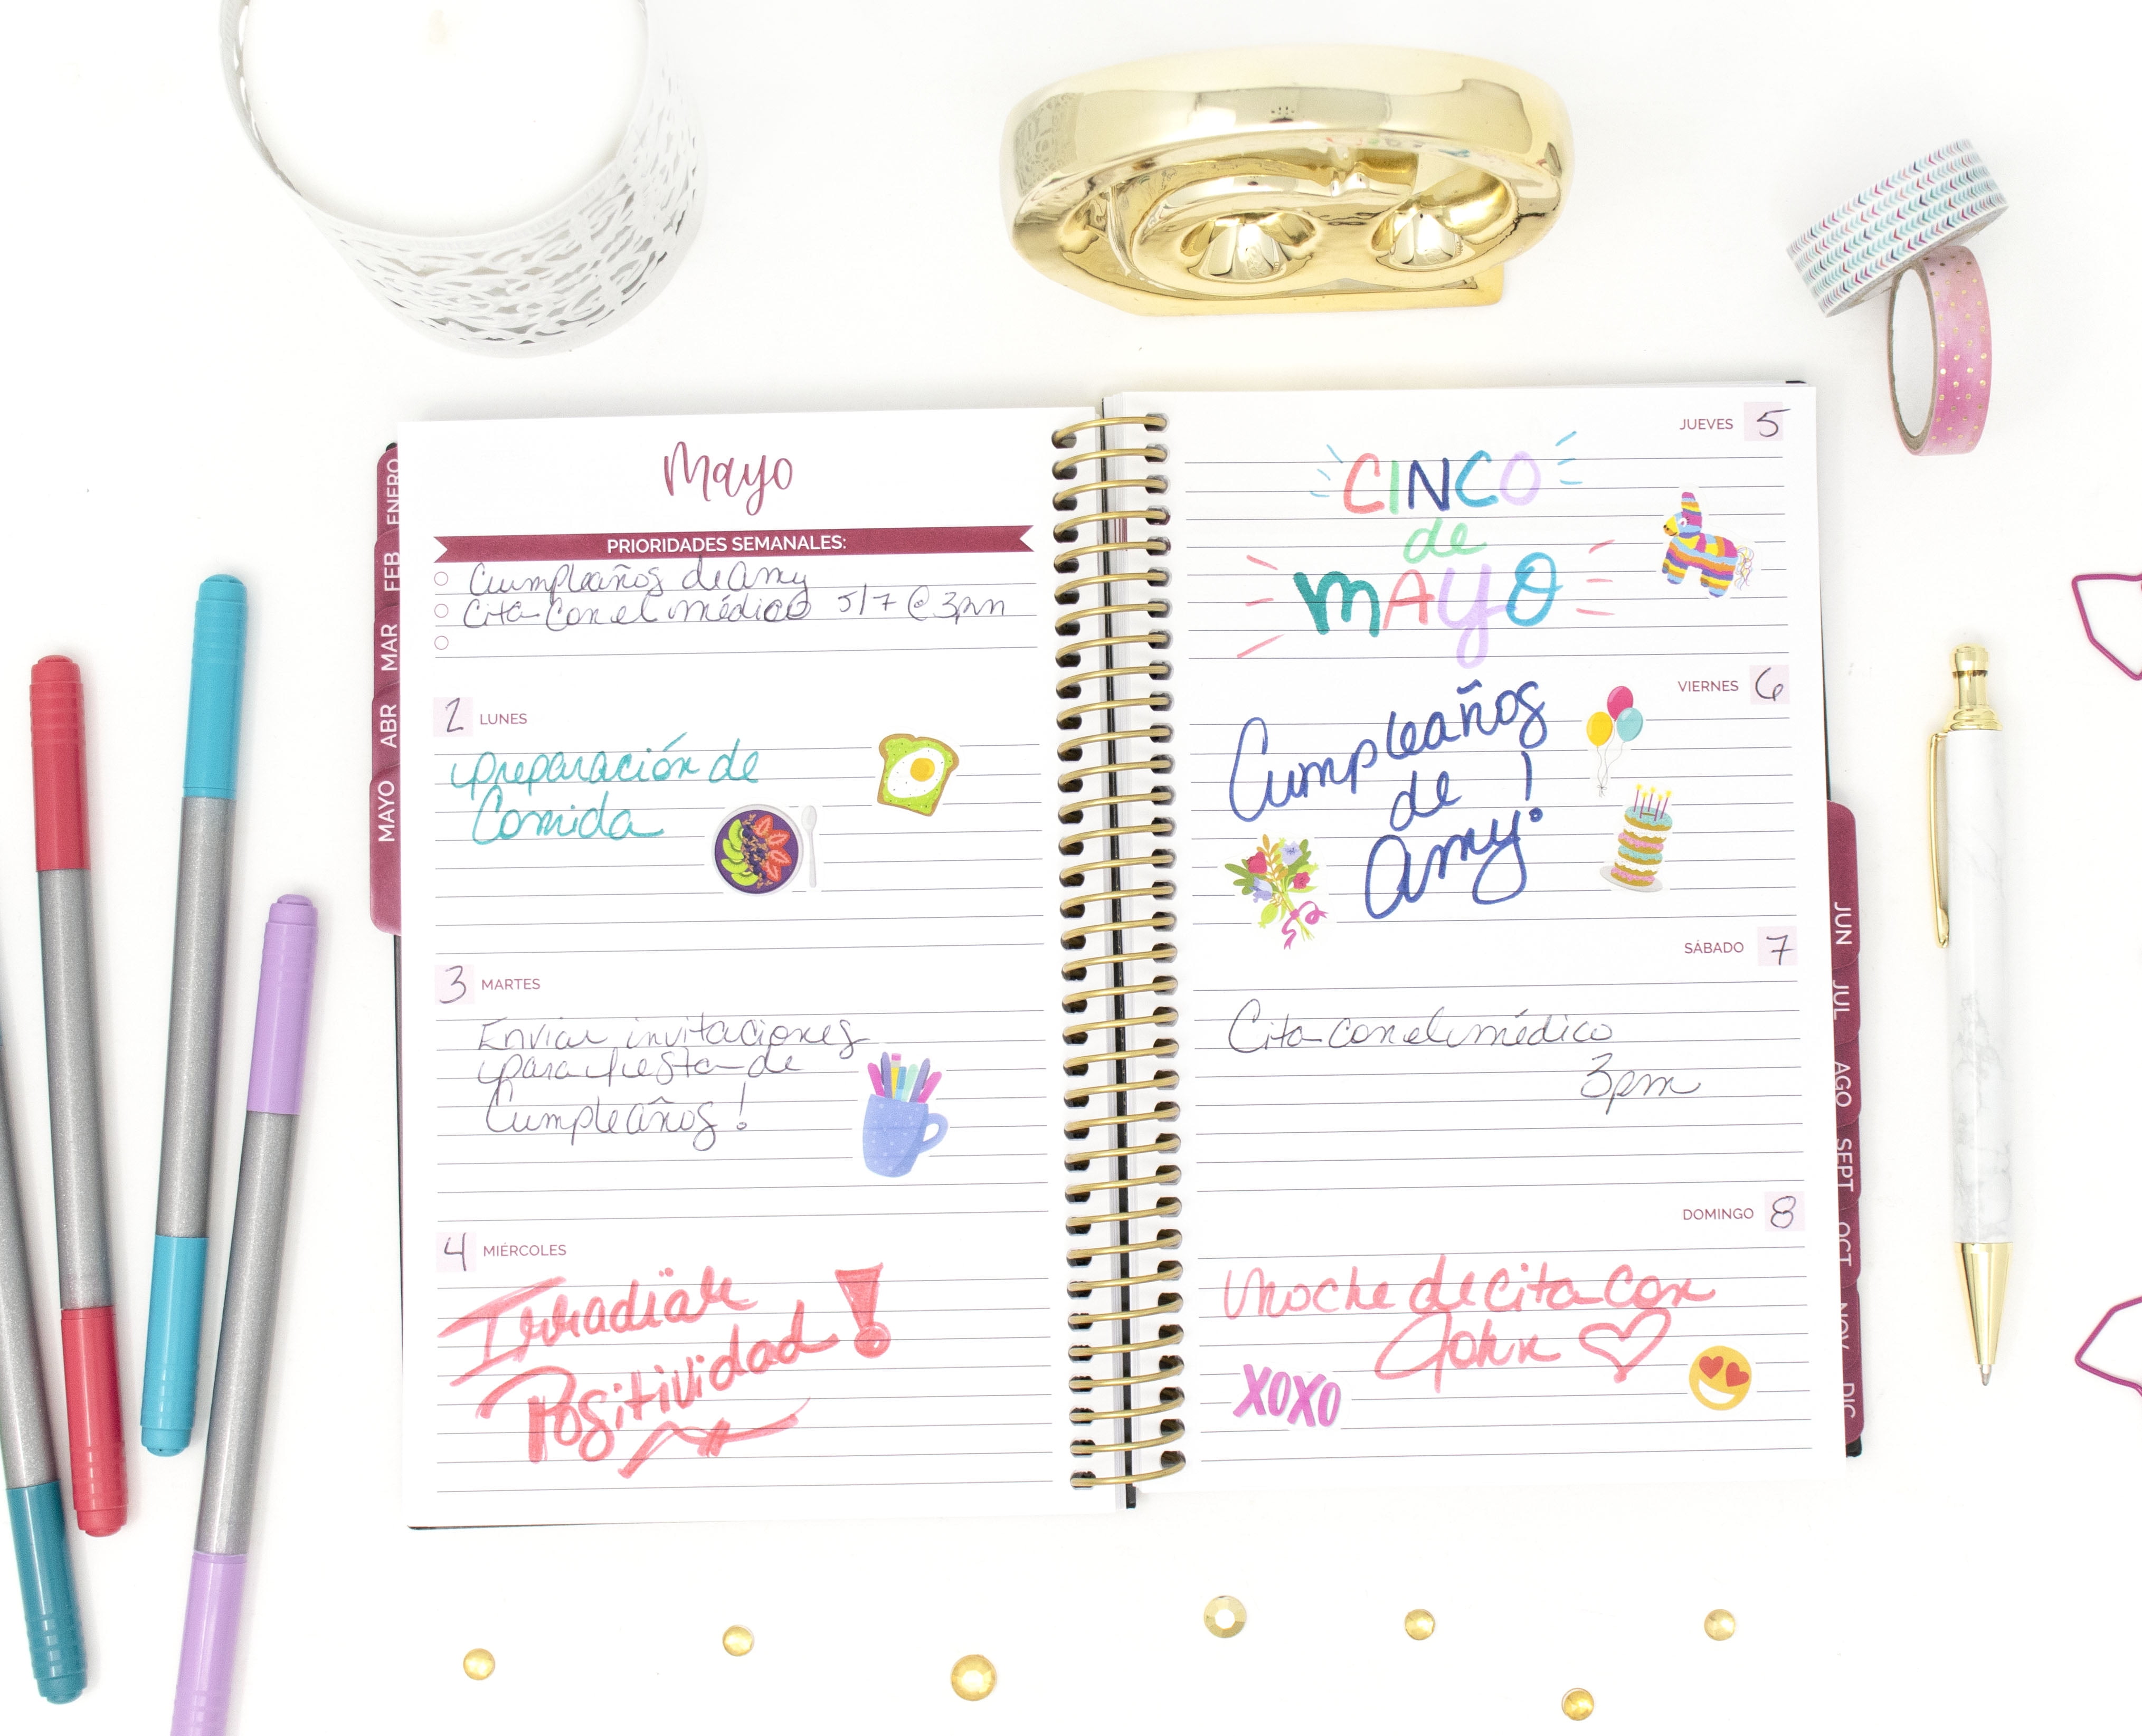 Mayo
PRIORIDADES SEMANALES:
Cumpleaños de Amy
Cita con el médico 5/7 @ 3pm
2 LUNES
preparación de
Comida
3 MARTES
Enviar invitaciones
para fiesta de
Cumpleaños!
4 MIÉRCOLES
Irradiar
Positividad!
JUEVES 5
CINCO
de
MAYO
VIERNES 6
Cumpleaños
de
Amy!
SÁBADO 7
Cita con el médico
3pm
DOMINGO 8
Noche de cita con
John
XOXO
ENERO
FEB
MAR
ABR
MAYO
JUN
JUL
AGO
SEPT
OCT
NOV
DIC